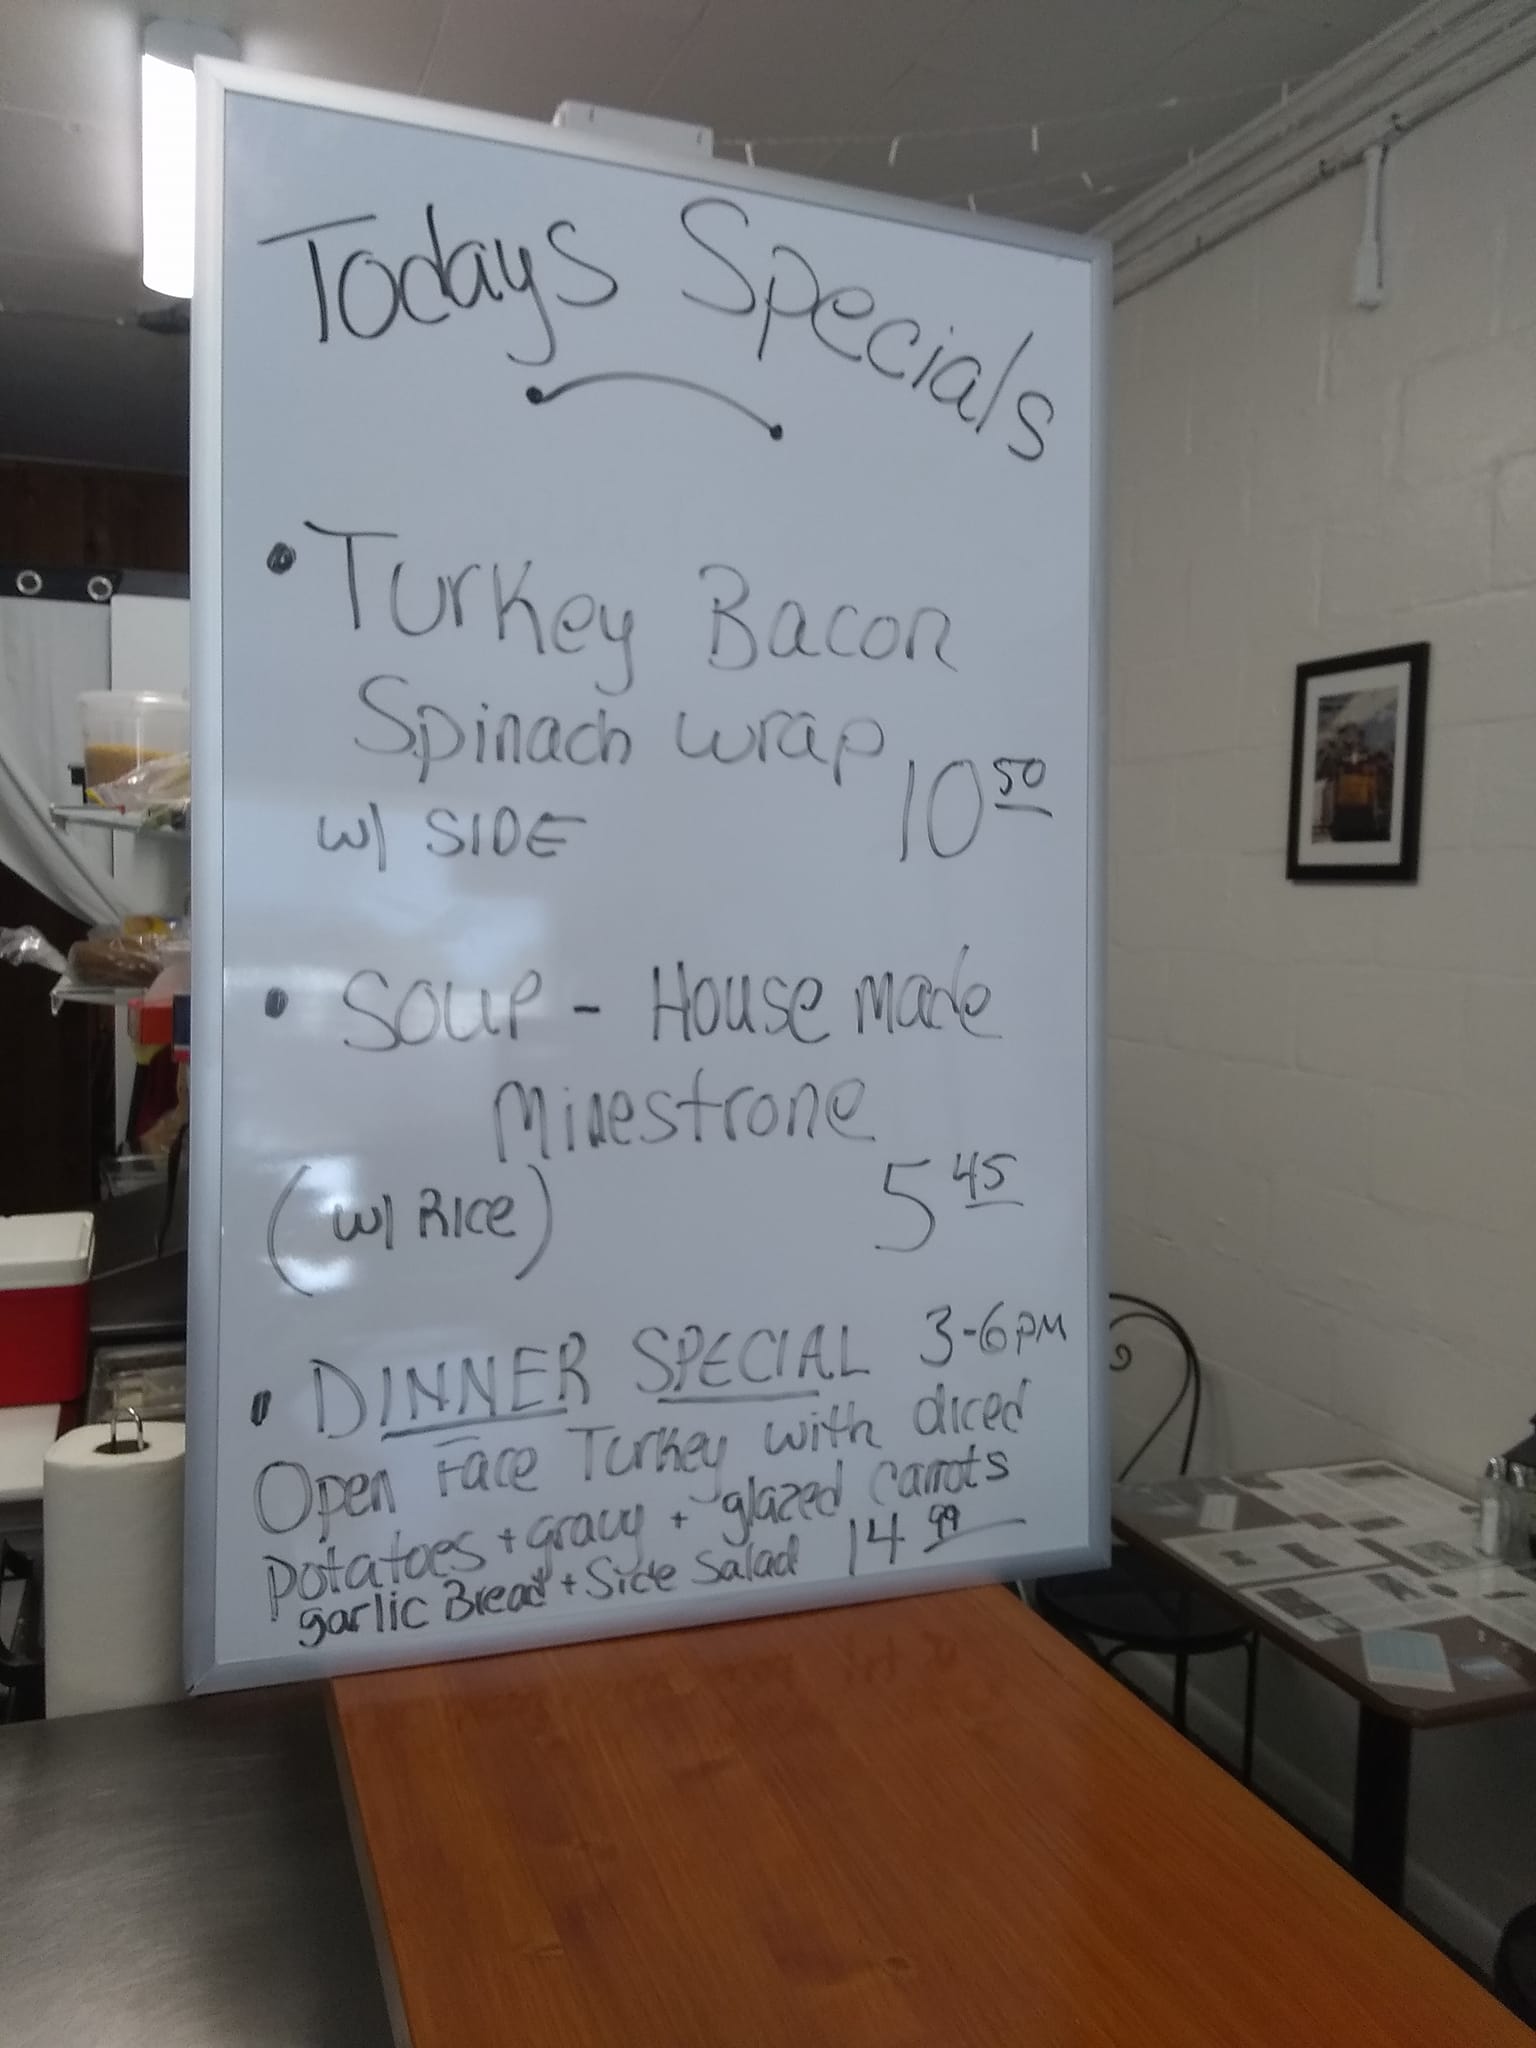 Todays Specials
• Turkey Bacon
Spinach wrap
w/ SIDE 10 50
• Soup - House made
Minestrone
(w/ Rice) 5 45
• DINNER SPECIAL 3-6pm
Open Face Turkey with diced
potatoes + gravy + glazed carrots
garlic Bread + Side Salad 14 99